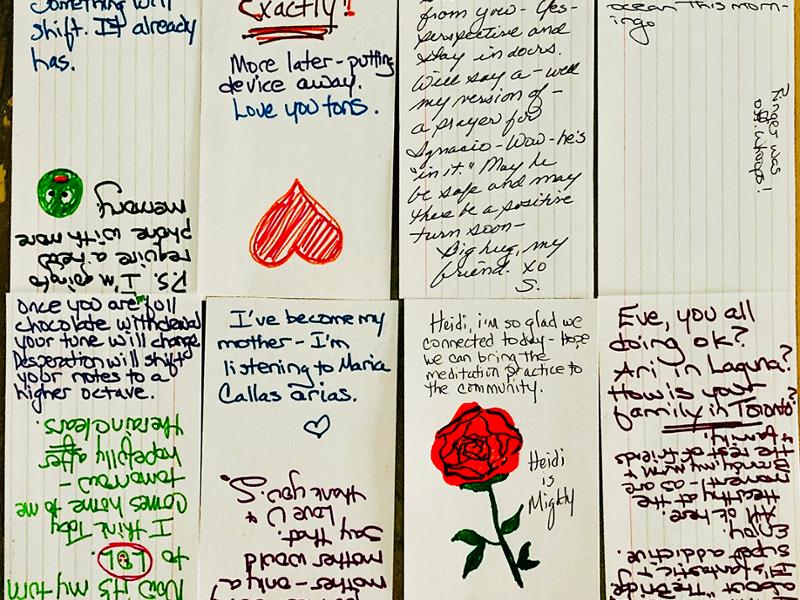 Something will
shift. It already
has.
P.S. I'm going to
require a new
phone with more
memory.
Exactly!
More later - putting
device away.
Love you tons.
from you - Yes -
perspective and
stay in doors.
Will say a - well
my version of -
a prayer for
Ignacio - Wow - he's
"in it." May he
be safe and may
there be a positive
turn soon -
Big hug, my
friend. xo
S.
ocean this morn-
ingo
Ringer was
off. Whoops!
Once you are in full
chocolate withdrawal
your tune will change
Desperation will shift
your notes to a
higher octave.
Now it's my turn
to LOL.
I think Toby
comes home to me
tomorrow -
hopefully after
the rain clears.
I've become my
mother - I'm
listening to Maria
Callas arias.
mother - only a
mother would
say that.
Love U &
thank you. S.
Heidi, i'm so glad we
connected today - Hope
we can bring the
meditation practice to
the community.
Heidi
is
Mighty
Eve, you all
doing ok?
Ari in Laguna?
How is your
family in Toronto?
about "The Bride
It's fantastic &
super addictive.
Enjoy.
All ok here.
Healthy at the
moment - as are
my mum &
the rest of friends
& family.